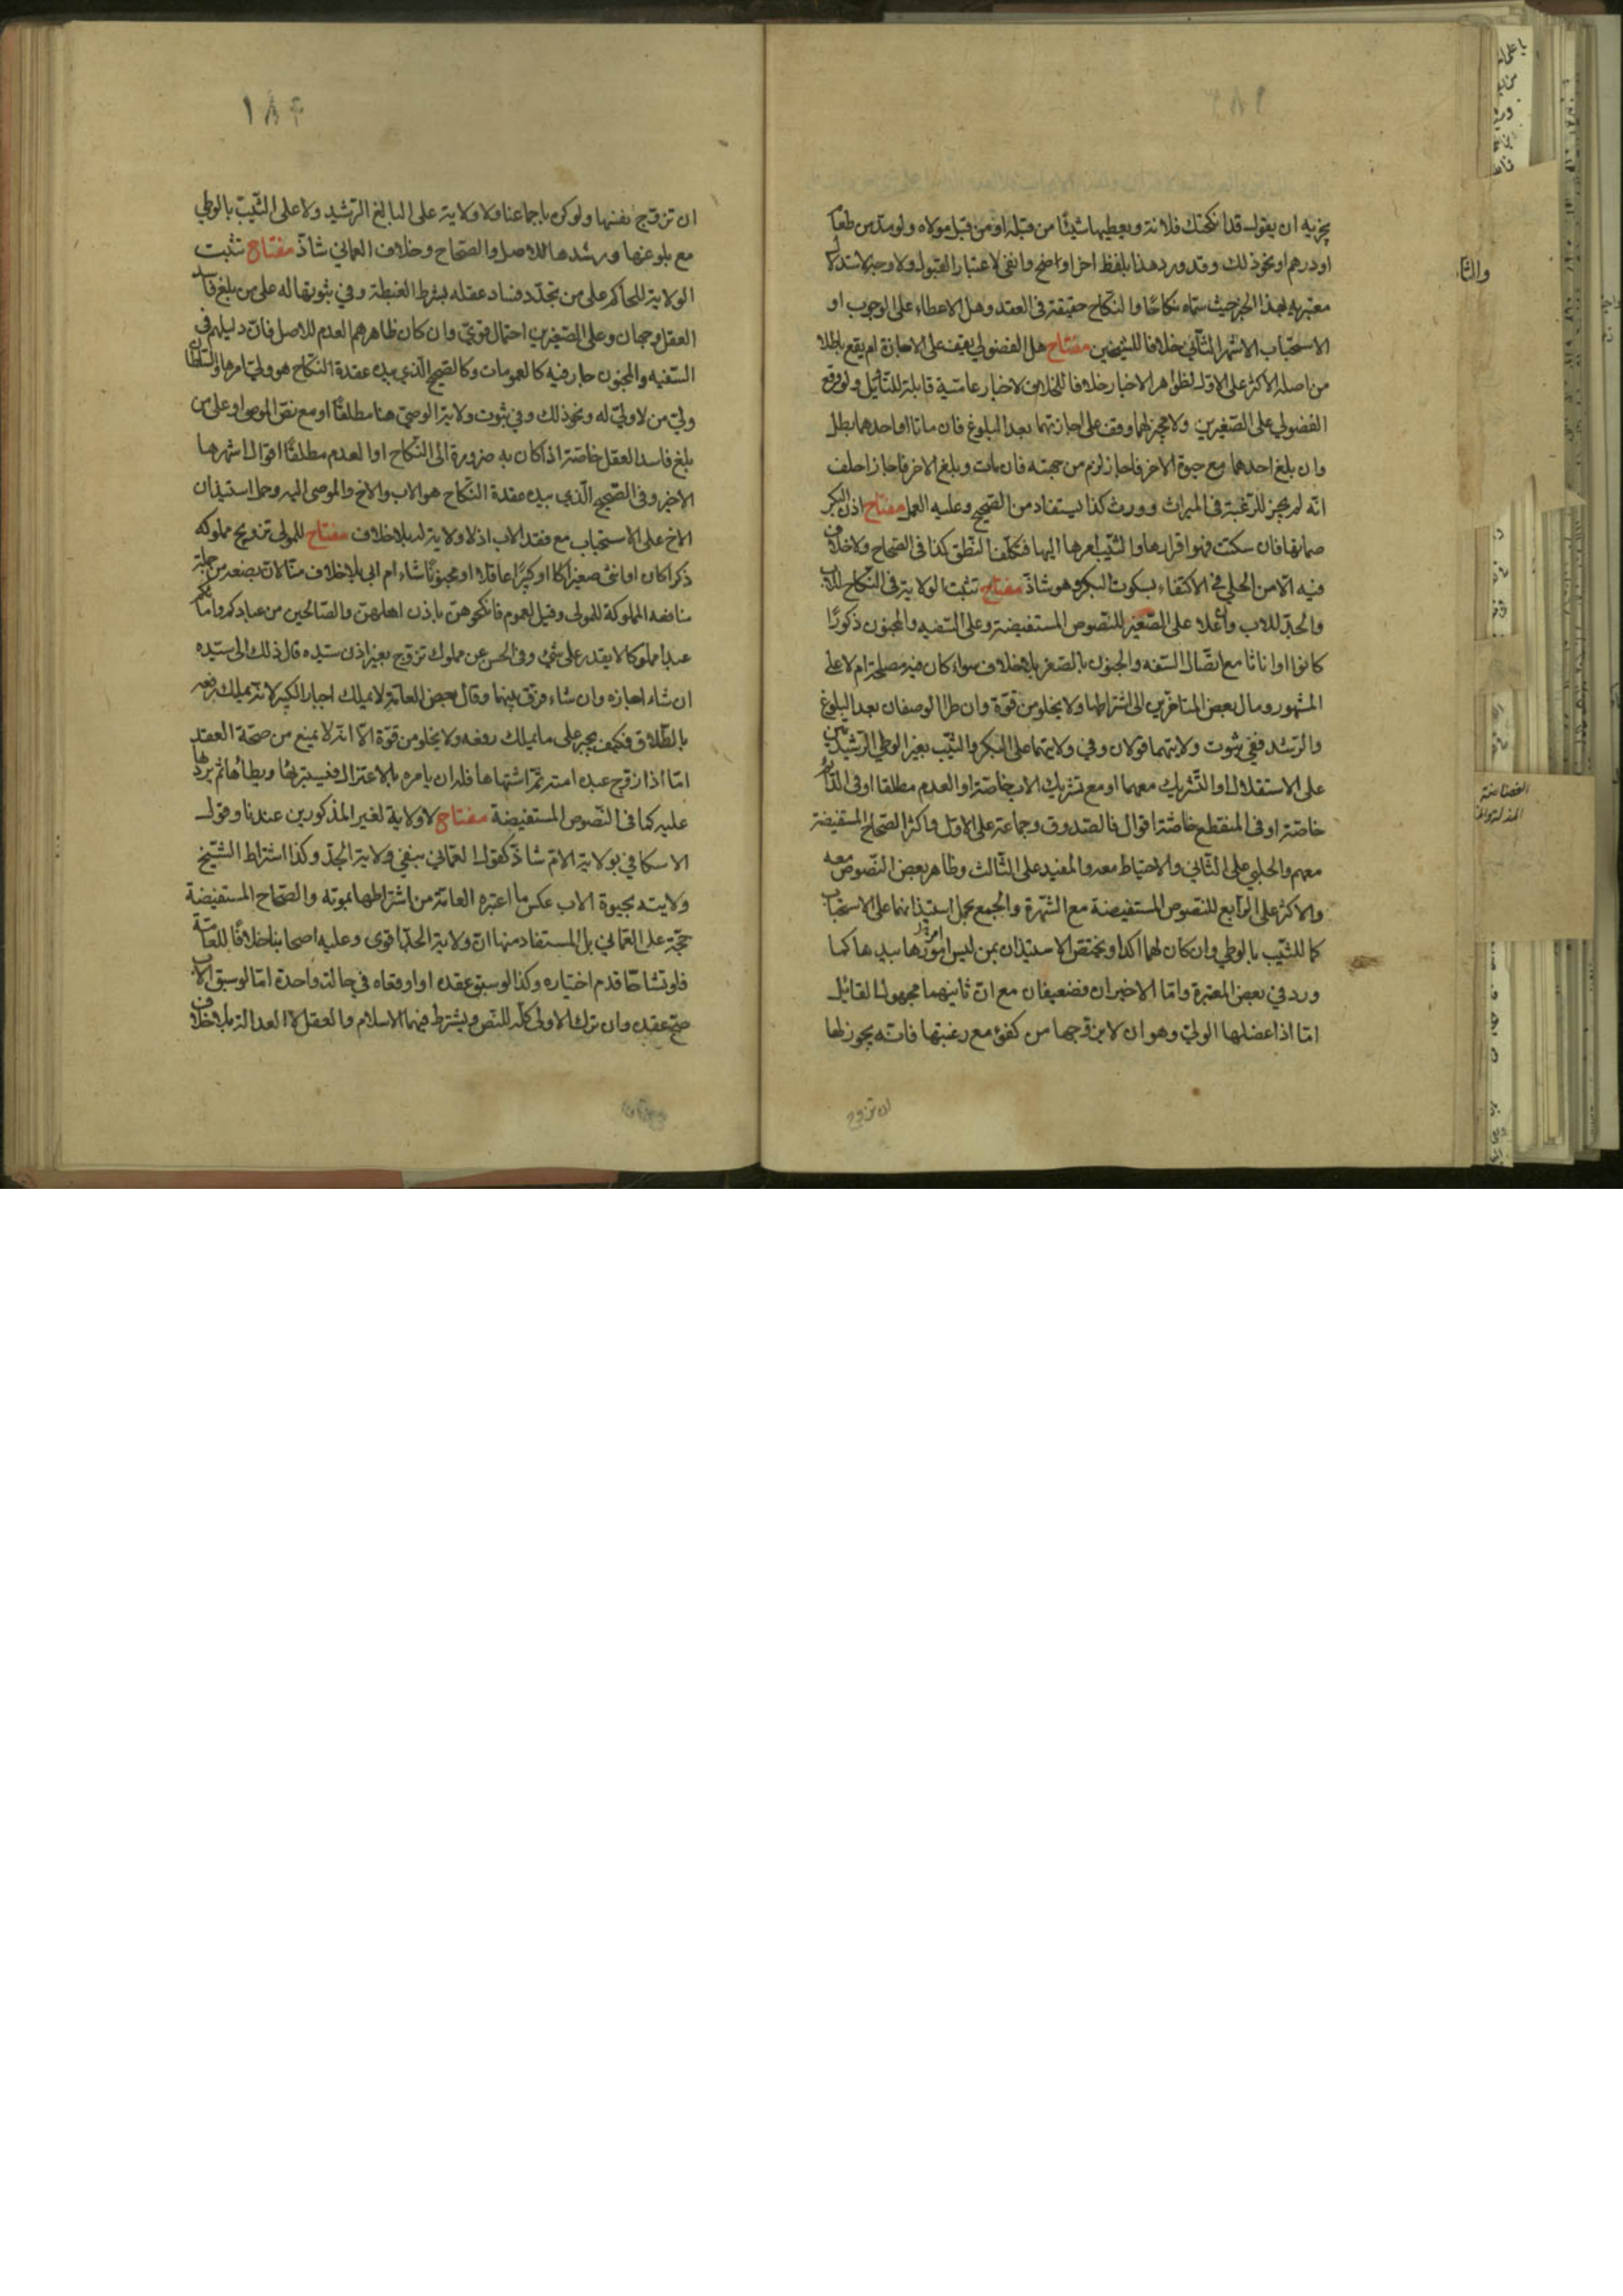 يجزيه ان يقول قد انكحتك فلانة ويعطيها شيئا من قبله او من قبل مولاه ولو مدّ من طعام
او درهم او نحو ذلك وقد ورد هذا بلفظ اخر اوضح وانفى لاعتبار القبول ولا وجه لاستدلال
معتبريه بهذا الخبر حيث سمّاه نكاحًا والنكاح حقيقة فى العقد وهل الاعطاء على الوجوب او
الاستحباب الاشهر الثاني خلافا للشيخين مفتاح هل الفضولي يقف على الاجازة ام يقع باطلا
من اصله الاكثر على الاول لظواهر الاخبار خلافا للخلاف لاخبار عامية قابلة للتأويل ولو وقع
الفضولي على الصغيرين ولا مجيز لهما وقف على اجازتهما بعد البلوغ فان ماتا او احدهما بطل
وان بلغ احدهما مع حيوة الاخر فاجاز لزم من جهته فان مات وبلغ الاخر فاجاز احلف
انه لم يجز للرغبة فى الميراث وورث كذا يستفاد من الصحيح وعليه العمل مفتاح اذن البكر
صماتها فان سكتت فهو اقرارها والثيّب امرها اليها فتكلف النطق كذا فى الصحاح ولا خلاف
فيه الّا من الحلي في الاكتفاء بسكوت البكر وهو شاذّ مفتاح تثبت الولاية فى النكاح للاب
والجدّ للاب وان علا على الصغير للنصوص المستفيضة وعلى السفيه والمجنون ذكورًا
كانوا او اناثا مع اتّصال السفه والجنون بالصغر بلا خلاف سواء كان فيه مصلحة ام لا على
المشهور ومال بعض المتاخرين الى اشتراطها ولا يخلو من قوّة وان طرا الوصفان بعد البلوغ
والرشد ففي ثبوت ولايتهما قولان وفي ولايتهما على البكر والثيّب بغير الوطي الرشيدتين
على الاستقلال او التشريك معهما او مع تشريك الاب خاصّة او العدم مطلقا او فى الدائم
خاصّة او فى المنقطع خاصّة اقوال فالصدوق وجماعة على الاول واكثر الصحاح المستفيضة
معهم والحلبي على الثّاني والاحتياط معه والمفيد على الثالث وظاهر بعض النصوص معه
والاكثر على الرّابع للنصوص المستفيضة مع الشهرة والجمع بحمل استيذانهما على الاستحباب
كما للثيّب بالوطي وان كان لهما اكد او بختصّ الاستيذان بمن ليس امورها بيدها كما
ورد في بعض المعتبرة وامّا الاخيران فضعيفان مع انّ ثانيهما مجهول القائل
امّا اذا عضلها الوليّ وهو ان لا يزوّجها من كفؤ مع رغبتها فانّه يجوز لها
ان تزوج
ان تزوّج نفسها ولو كرها جماعنا ولا ولاية على البالغ الرّشيد ولا على الثّيب بالوطي
مع بلوغها ورشدها للاصل والصحاح وخلاف العماني شاذّ مفتاح تثبت
الولاية للحاكم على من تجدّد فساد عقله بشرط الغبطة وفي ثبوتها له على من بلغ فاسد
العقل وجهان وعلى الصغيرين احتمال قويّ وان كان ظاهرهم العدم للاصل فانّ دليلهم في
السّفيه والمجنون جار فيه كالعمومات وكالصحيح الّذي بيده عقدة النكاح هو وليّ امرها والسلطان
وليّ من لا وليّ له ونحو ذلك وفي ثبوت ولاية الوصيّ هنا مطلقًا او مع نصّ الموصى او على من
بلغ فاسد العقل خاصّة اذا كان به ضرورة الى النّكاح او العدم مطلقًا اقوال اشهرها
الاخير وفى الصّحيح الّذي بيده عقدة النكاح هو الاب والاخ والموصى اليه وحمل استيذان
الاخ على الاستحباب مع فقد الاب اذ لا ولاية له بلا خلاف مفتاح للمولى تزويج مملوكه
ذكرًا كان او انثى صغيرًا كان او كبيرًا عاقلا او مجنونًا شاء ام ابى بلا خلاف منّا لانّ بضعه من جملة
منافعه المملوكة للمولى وقيل لعموم فانكحوهنّ باذن اهلهنّ والصّالحين من عبادكم وامائكم
عبدا مملوكا لا يقدر على شئ وفى الحسن عن مملوك تزوّج بغير اذن سيّده قال ذلك الى سيّده
ان شاء اجازه وان شاء فرّق بينهما وقال بعض العامّة لا يملك اجبار الكبير لانّه يملك رفعه
بالطّلاق فكيف يجبر على ما يملك رفعه ولا يخلو من قوّة الّا انّه لا يمنع من صحّة العقد
امّا اذا زوّج عبده امته ثمّ اشتهاها فله ان يامره بالاعتزال فيستبرئها ويطأها ثم يردّها
عليه كما فى النّصوص المستفيضة مفتاح لا ولاية لغير المذكورين عندنا وقول
الاسكافي بولاية الامّ شاذّ كقول العمّاني بنفي ولاية الجدّ وكذا اشتراط الشّيخ
ولايته بحيوة الاب عكس ما اعتبره العامّة من اشتراطها بموته والصّحاح المستفيضة
حجّة على العمّاني بل المستفاد منها انّ ولاية الجدّ اقوى وعليه اصحابنا خلافًا للعامّة
فلو تشاحّا قدم اختياره وكذا لو سبق عقده او اوقعاه في حالة واحدة امّا لو سبق الاب
صحّ عقده وان ترك الاولى كلّه للنّص ويشترط فيهما الاسلام والعقل لا العدالة بلا خلاف